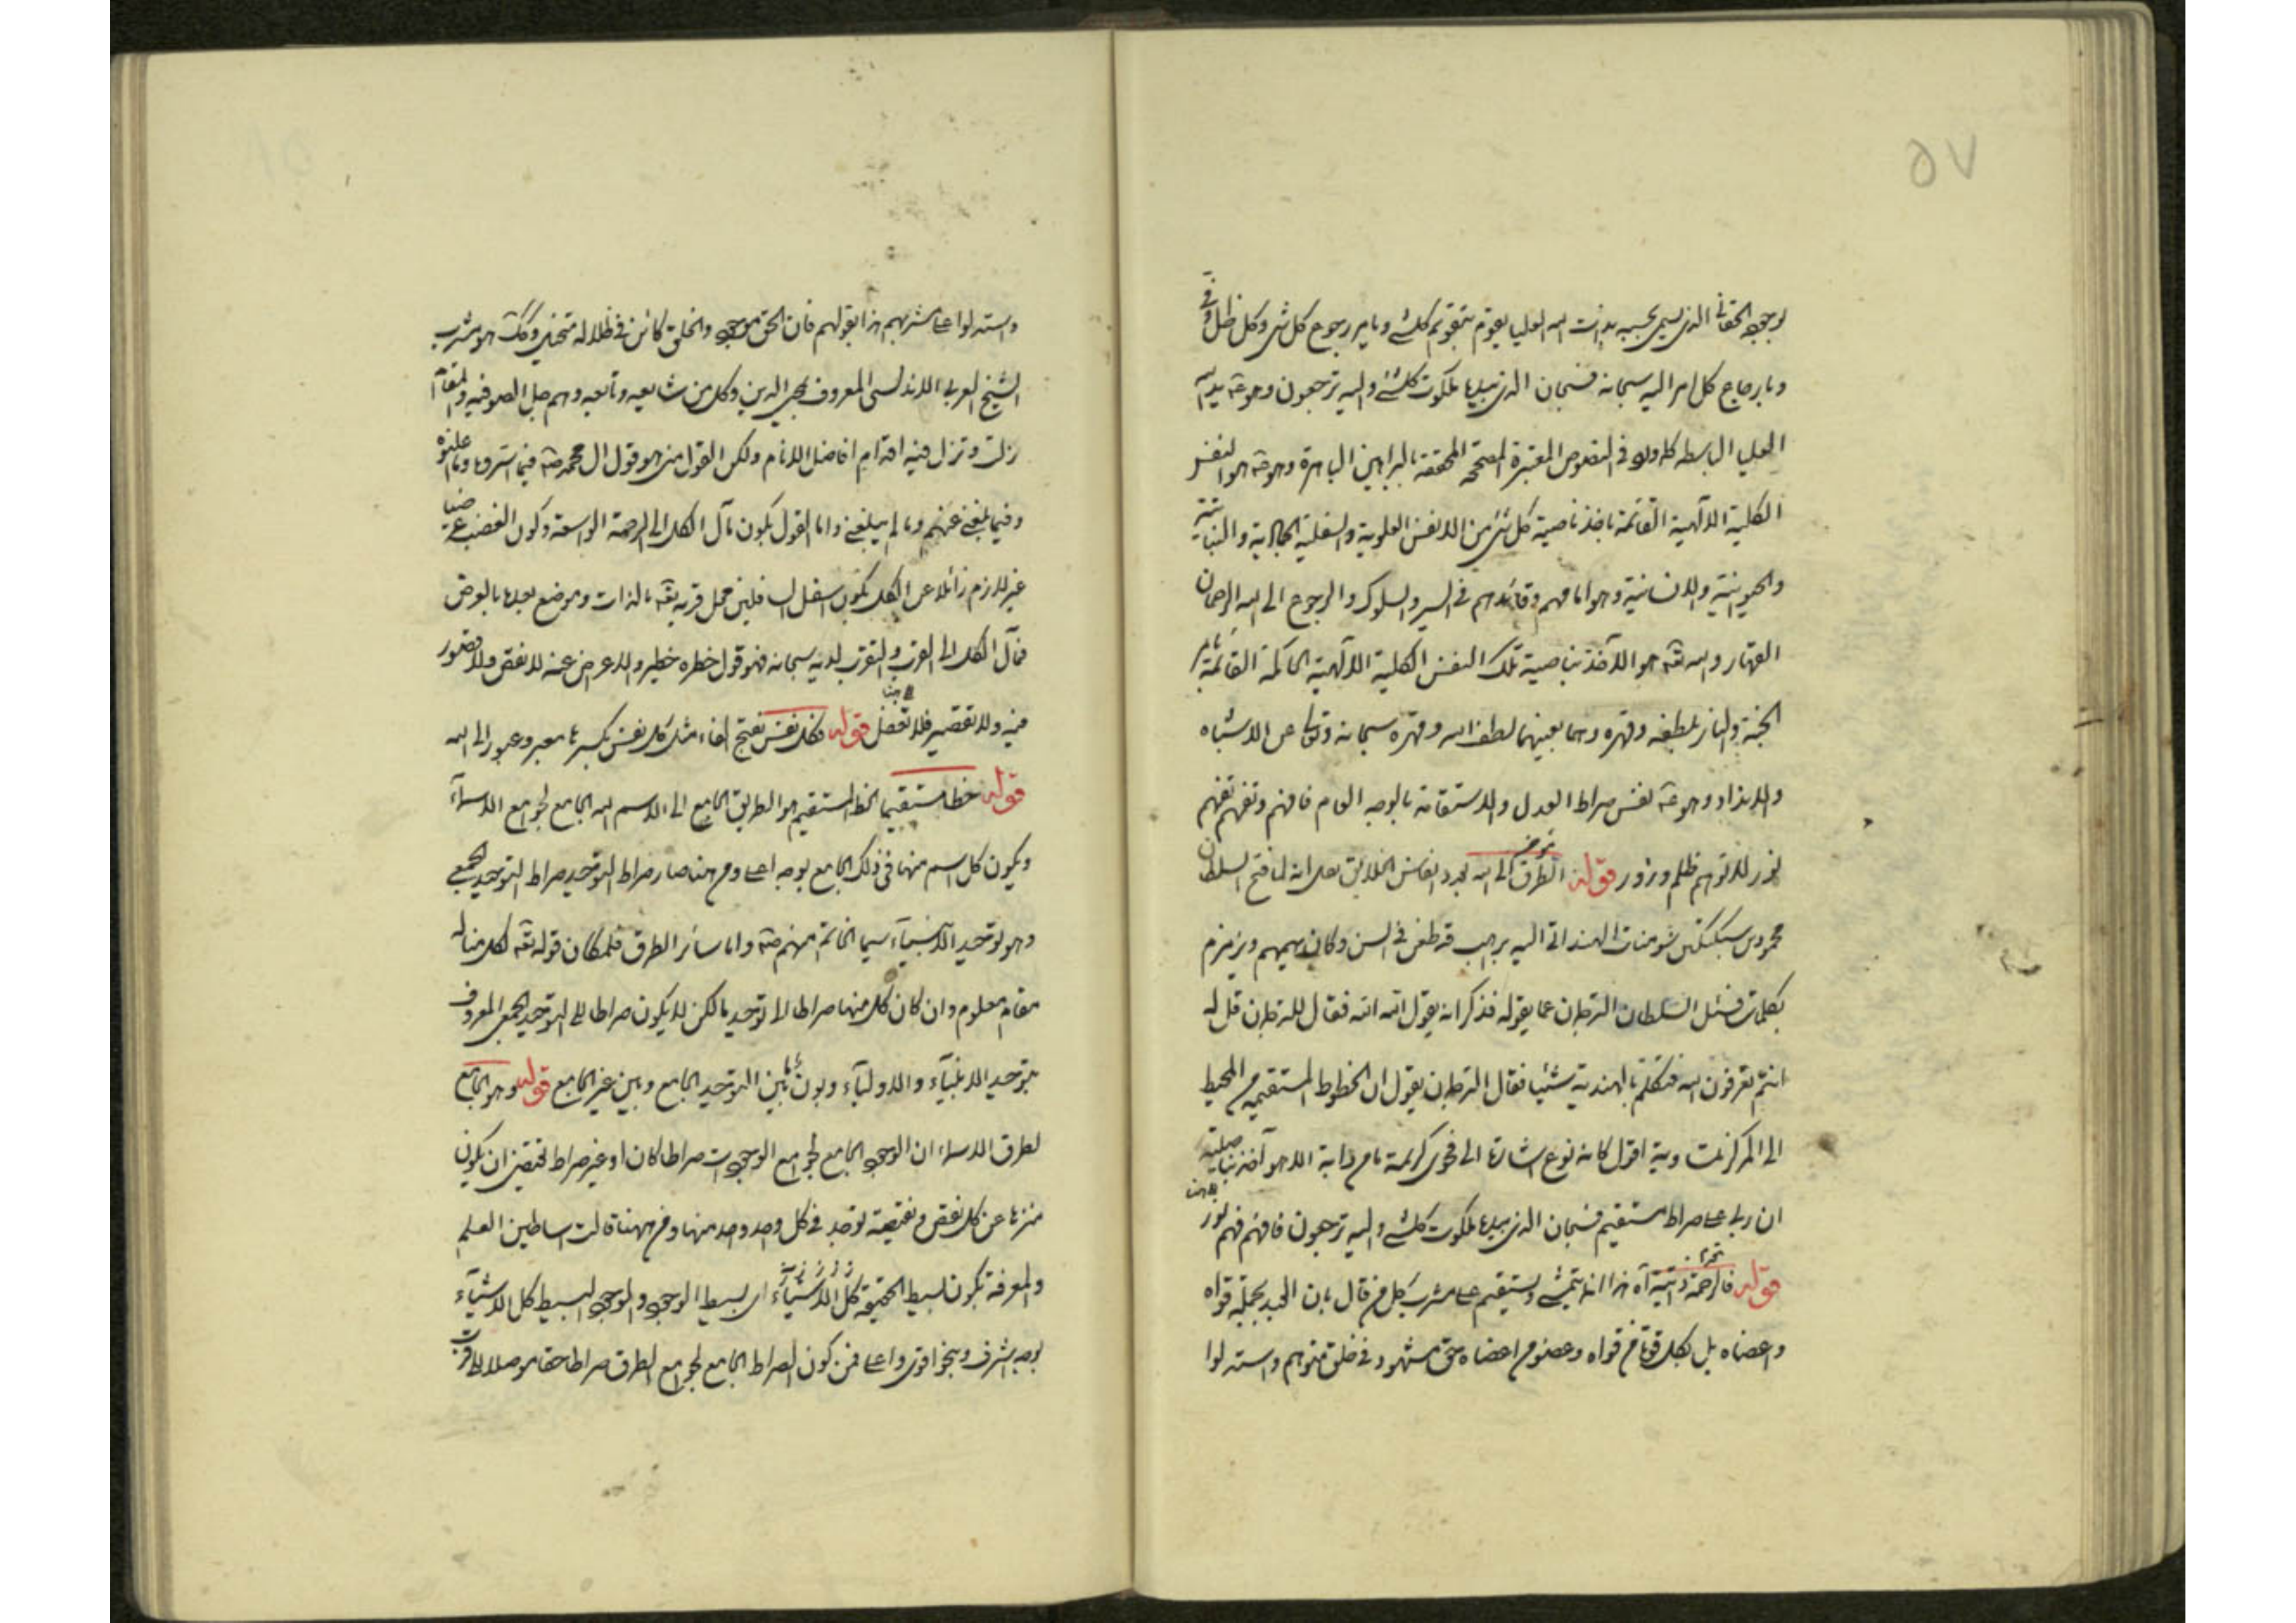 ٥٧
لوجود الحقاني الذي يسمى بحسبه بذات الله العليا يقوم بتقومه كلشئ وبامره رجوع كل شئ وكل ظل وفئ
وبارجاع كل امر اليه سبحانه فسبحان الذي بيدها ملكوت كلشئ واليه ترجعون وهو يد الله
العليا الباسطة كما ورد في النصوص المعتبرة المصححة المحققة بالبراهين الباهرة وهو هو النفس
الكلية الالهية القائمة باخذ ناصية كل شئ من الانفس العلوية والسفلية الجمادية والنباتية
والحيوانية والانسانية وهو امامهم وقائدهم في السير والسلوك والرجوع الى الله الرحمان
القهار والله تعه هو الآخذ بناصية تلك النفس الكلية الالهية الحاكمة القائمة بامر
الجنة والنار بلطفه وقهره وهما بعينهما لطف الله وقهره سبحانه وتعالى عن الاشباه
والانداد وهو نفس صراط العدل والاستقامة بالوجه العام فافهم وتفهم تفهم
نور لا توهم ظلم وزور قوله الطرق الى الله بعدد انفاس الخلايق نقل انه لما فتح السلطان
محمود بن سبكتكين سومنات الهند اتي اليه براهب قد طعن في السن وكان يهيمهم ويزمزم
بكلمات فسئل السلطان الترجمان عما يقوله فذكر انه يقول الله الله فقال للترجمان قل له
انتم تعرفون الله فتكلم بالهندية شيئا فقال الترجمان يقول ان الخطوط المستقيمة من المحيط
الى المركز متساوية اقول كانه نوع اشارة الى فحوى كريمة ما من دابة الا هو آخذ بناصيتها
ان ربي على صراط مستقيم فسبحان الذي بيده ملكوت كلشئ واليه ترجعون فافهم فهم نور
قوله فالرحمة ذاتية آه هذا انما يتمشى ويستقيم على مشرب كل من قال بان العبد بجملة قواه
واعضاه بل بكل قوة من قواه وعضو من اعضاه حق مشهود في خلق متوهم واستدلوا
واستدلوا على مشربهم هذا بقولهم فان الحق موجود والخلق كائن في ظلاله متخيل وذلك هو مشرب
الشيخ العربي الاندلسي المعروف بمحيي الدين وكل من شايعه وتابعه وهم جل الصوفية والمقام
زلت وتزل فيه اقدام افاضل الانام ولكن القول مني هو قول ال محمد صه فيما اسروا وما اعلنوا
وفيما بلغني عنهم وما لم يبلغني واما القول بكون مآل الكل الى الرحمة الواسعة وكون الغضب عرضيا
غير لازم زائلا عن الكل بكون اسفل السافلين محل قربه تعه بالذات وموضع بعدها بالعرض
فمآل الكل الى القرب والتقرب لديه سبحانه فهو قول خطره خطير والاعراض عنه لا نقص ولا قصور
فيه ولا تقصير فلا تغفل قوله فكل نفس بفتح الفاء مثل كل نفس بكسرها معبر وعبور الى الله
قوله خطا مستقيما الخط المستقيم هو الطريق الجامع الى الاسم الله الجامع لجوامع الاسماء
ويكون كل اسم منها في ذلك الجامع بوجه اعلى ومن هنا صار صراط التوحيد صراط التوحيد الجمعي
وهو توحيد الانبيآء سيما الخاتم منهم صه واما سائر الطرق فلمكان قوله تعه لكل منا له
مقام معلوم وان كان كل منها صراطا الى توحيد ما لكن لا يكون صراطا الى التوحيد الجمعي المعروف
بتوحيد الانبيآء والاوليآء وبون ما بين التوحيد الجامع وبين غير الجامع قوله وهو الجامع
لطرق الاسماء ان الوجود الجامع لجوامع الوجودات صراطا كان او غير صراط لمقتض ان يكون
منزها عن كل نقص ونقيصة توجد في كل واحد واحد منها ومن ههنا قالت اساطين العلم
والمعرفة بكون بسيط الحقيقة كل الاشيآء اي بسيط الوجود والوجود البسيط كل الاشيآء
بوجه اشرف وبنحو اقوى واعلى فمن كون الصراط الجامع لجوامع الطرق صراطا حقا موصلا الى قرب